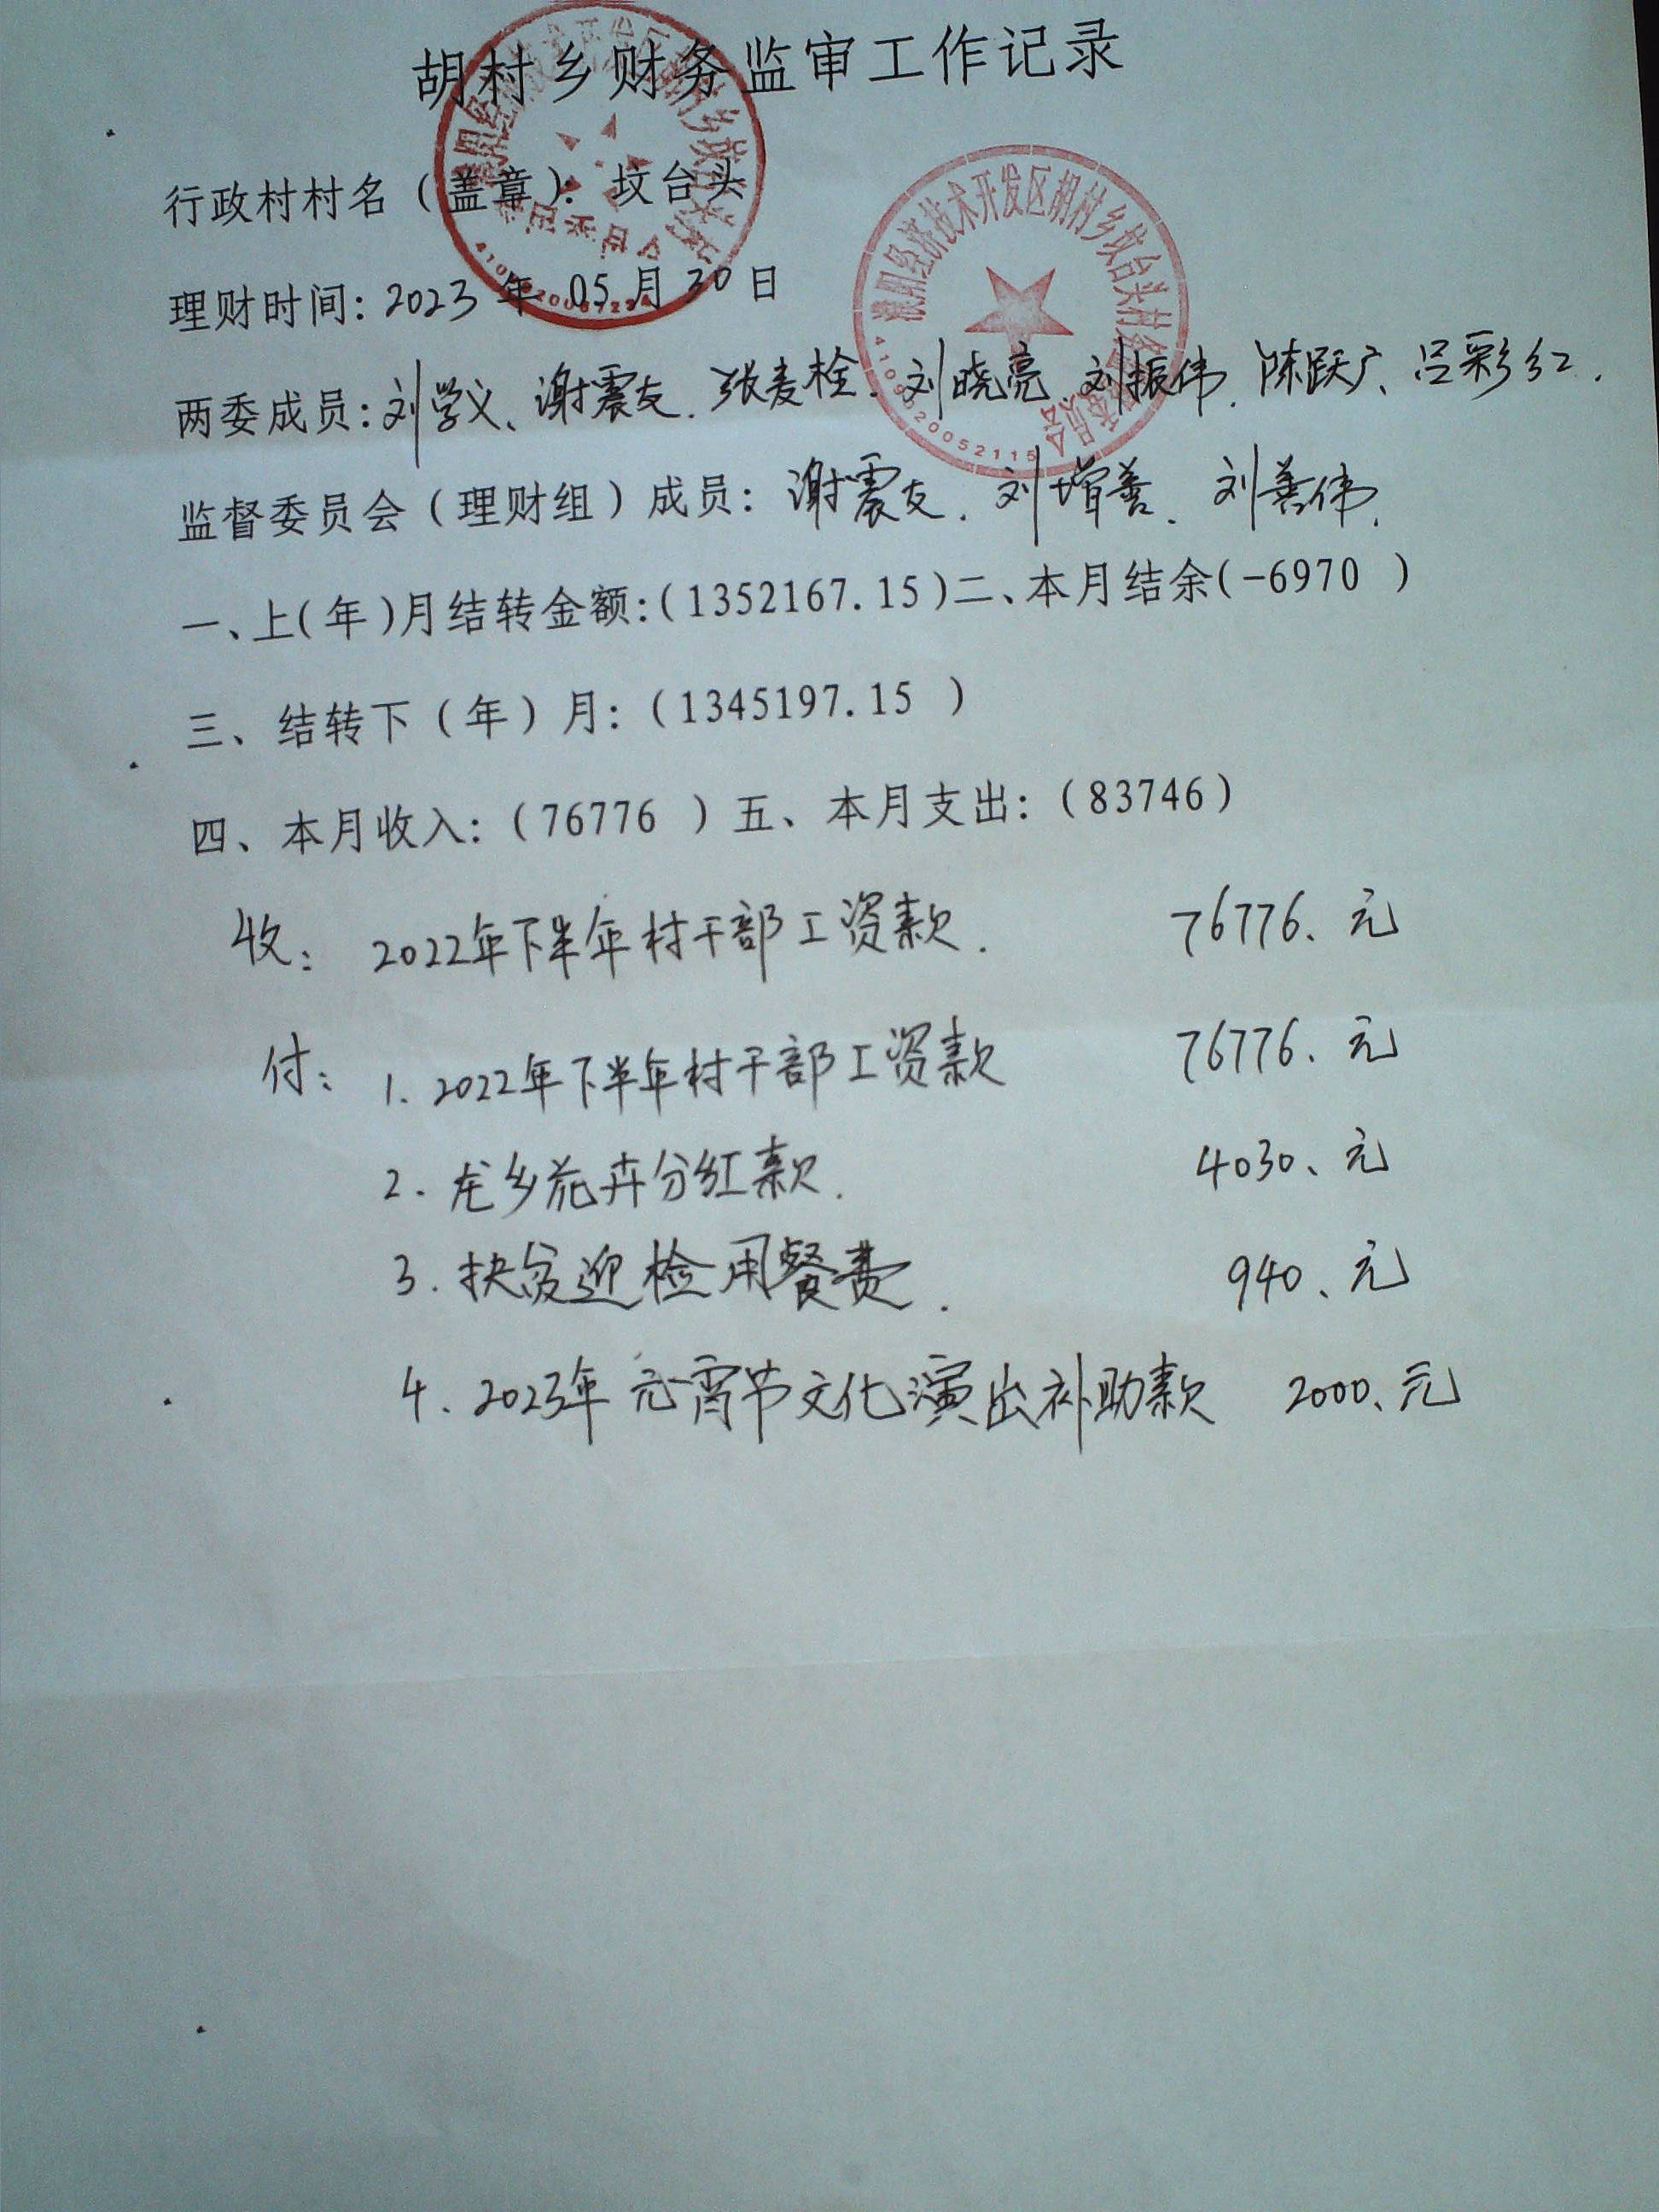 胡村乡财务监审工作记录
行政村村名（盖章）：坟台头
理财时间：2023 年 05 月 30 日
两委成员：刘学义、谢震友、张麦栓、刘晓亮、刘振伟、陈跃广、吕彩红.
监督委员会（理财组）成员：谢震友、刘增善、刘善伟.
一、上(年)月结转金额:(1352167.15)二、本月结余(-6970 )
三、结转下（年）月：（1345197.15 ）
四、本月收入：（76776 ）五、本月支出：（83746）
收： 2022年下半年村干部工资款. 76776、元
付： 1. 2022年下半年村干部工资款 76776、元
2. 龙乡花卉分红款. 4030、元
3. 扶贫迎检用餐费. 940、元
4. 2023年元宵节文化演出补助款 2000、元
濮阳经济技术开发区胡村乡坟台头村务监督委员会
4109020052115